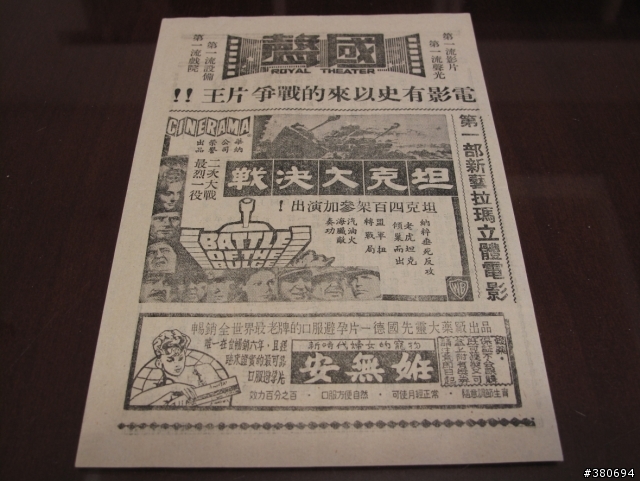 國聲
ROYAL THEATER
第一流影片
第一流聲光
第一流設備
第一流戲院
電影有史以來的戰爭片王!!
第一部新藝拉瑪立體電影
CINERAMA
華納
公司
榮譽
出品
二次大戰
最烈一役
坦克大決戰
坦克四百架參加演出!
納粹垂死反攻
老虎坦克
傾巢而出
盟軍扭
轉戰局
汽油火
海殲敵
奏功
BATTLE
OF THE
BULGE
WB
暢銷全世界最老牌的口服避孕片—德國先靈大藥廠出品
唯一在台暢銷六年,且經
臨床證實的最可靠
口服避孕片
新時代婦女的寵物
安無妊
效力百分之百·口服方便自然·可使月經正常·隨意調節生育
#380694